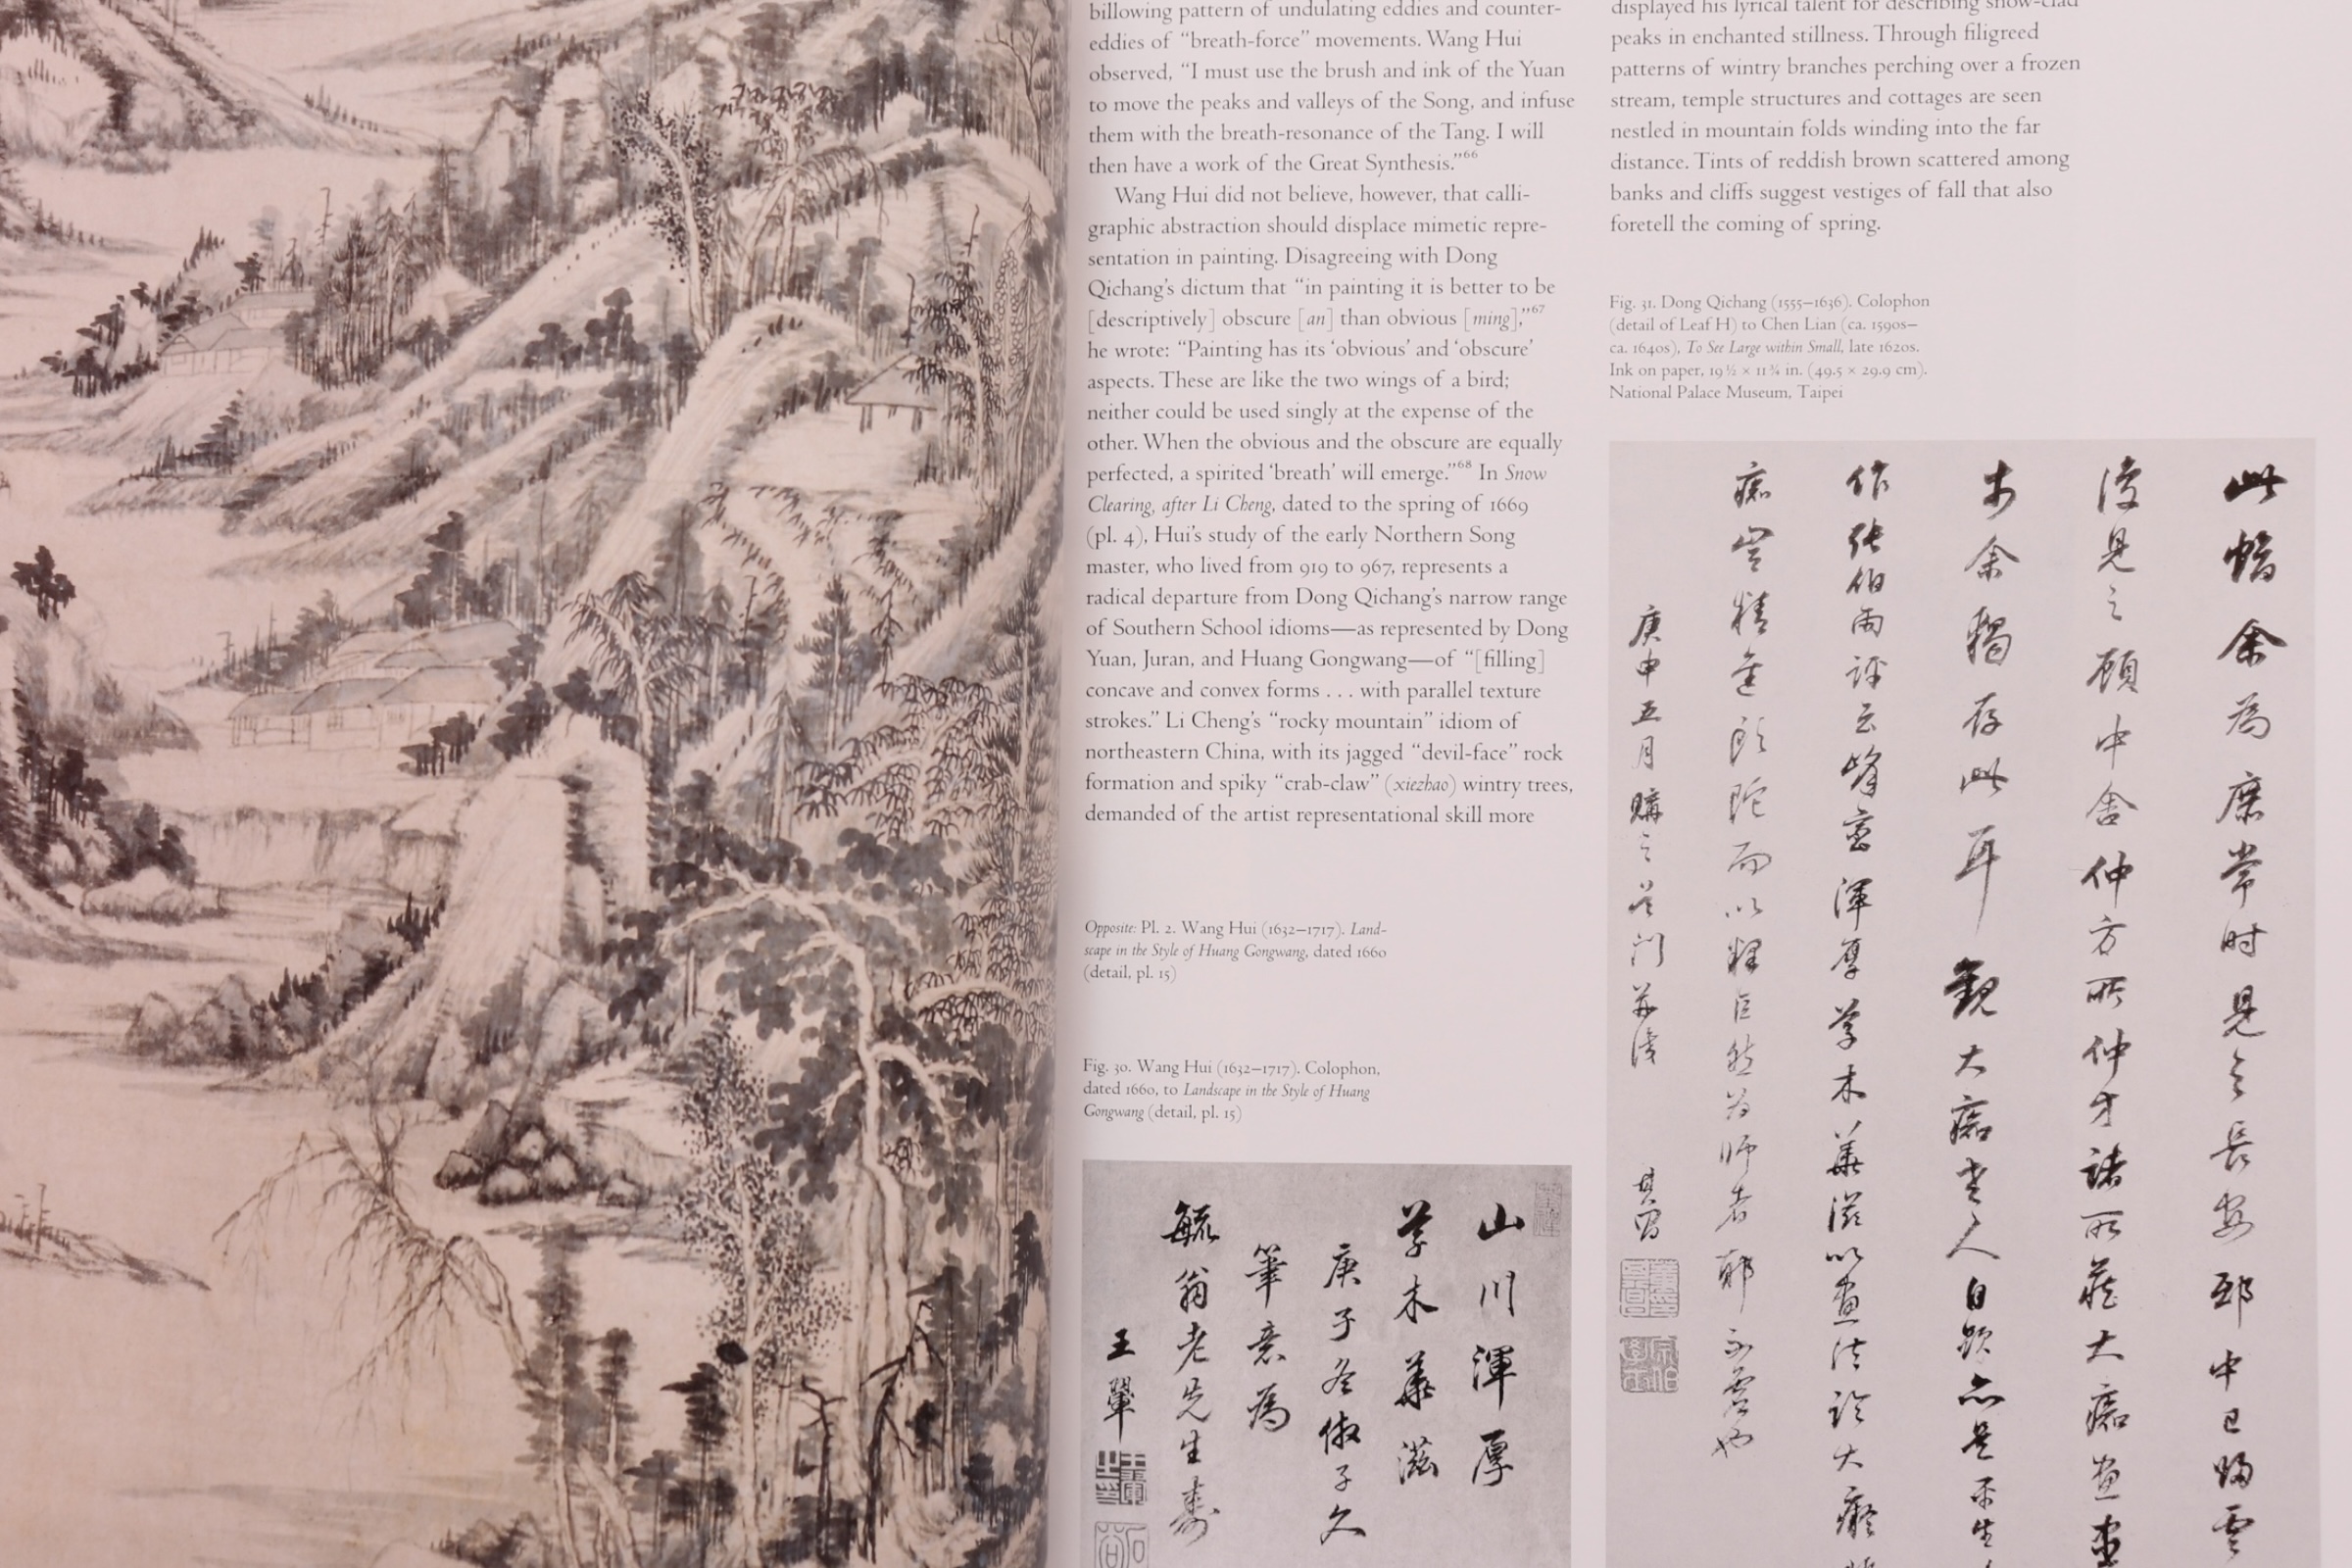 billowing pattern of undulating eddies and counter-
eddies of “breath-force” movements. Wang Hui
observed, “I must use the brush and ink of the Yuan
to move the peaks and valleys of the Song, and infuse
them with the breath-resonance of the Tang. I will
then have a work of the Great Synthesis.”66
Wang Hui did not believe, however, that calli-
graphic abstraction should displace mimetic repre-
sentation in painting. Disagreeing with Dong
Qichang’s dictum that “in painting it is better to be
[descriptively] obscure [an] than obvious [ming],”67
he wrote: “Painting has its ‘obvious’ and ‘obscure’
aspects. These are like the two wings of a bird;
neither could be used singly at the expense of the
other. When the obvious and the obscure are equally
perfected, a spirited ‘breath’ will emerge.”68 In Snow
Clearing, after Li Cheng, dated to the spring of 1669
(pl. 4), Hui’s study of the early Northern Song
master, who lived from 919 to 967, represents a
radical departure from Dong Qichang’s narrow range
of Southern School idioms—as represented by Dong
Yuan, Juran, and Huang Gongwang—of “[filling]
concave and convex forms . . . with parallel texture
strokes.” Li Cheng’s “rocky mountain” idiom of
northeastern China, with its jagged “devil-face” rock
formation and spiky “crab-claw” (xiezhao) wintry trees,
demanded of the artist representational skill more
Opposite: Pl. 2. Wang Hui (1632–1717). Land-
scape in the Style of Huang Gongwang, dated 1660
(detail, pl. 15)
Fig. 30. Wang Hui (1632–1717). Colophon,
dated 1660, to Landscape in the Style of Huang
Gongwang (detail, pl. 15)
山川渾厚
草木華滋
庚子冬倣子久
筆意為
毓翁老先生壽
王翬
displayed his lyrical talent for describing snow-clad
peaks in enchanted stillness. Through filigreed
patterns of wintry branches perching over a frozen
stream, temple structures and cottages are seen
nestled in mountain folds winding into the far
distance. Tints of reddish brown scattered among
banks and cliffs suggest vestiges of fall that also
foretell the coming of spring.
Fig. 31. Dong Qichang (1555–1636). Colophon
(detail of Leaf H) to Chen Lian (ca. 1590s–
ca. 1640s), To See Large within Small, late 1620s.
Ink on paper, 19 ½ × 11 ¾ in. (49.5 × 29.9 cm).
National Palace Museum, Taipei
此幅余為庶常時見之長安邸中已歸雲
復見之顧中舍仲方所仲方諸所藏大癡畫
余獨存此耳觀大癡老人自題亦是平生
作張伯雨評云峰巒渾厚草木華滋以畫法論大癡
癡豈精進頭陀而以釋巨然為師者耶不虛也
庚申五月購之 門 其昌